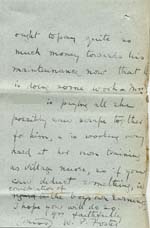 ought to pay quite so
much money towards his
maintenance now that h
is doing some work & Mrs
is paying all she
possibly can scrape to, that
for him, & is working very
hard at her own training
as village nurse, so if you
can deduct something in
consideration of
the boys earning
I hope you will do so
I am faithfully